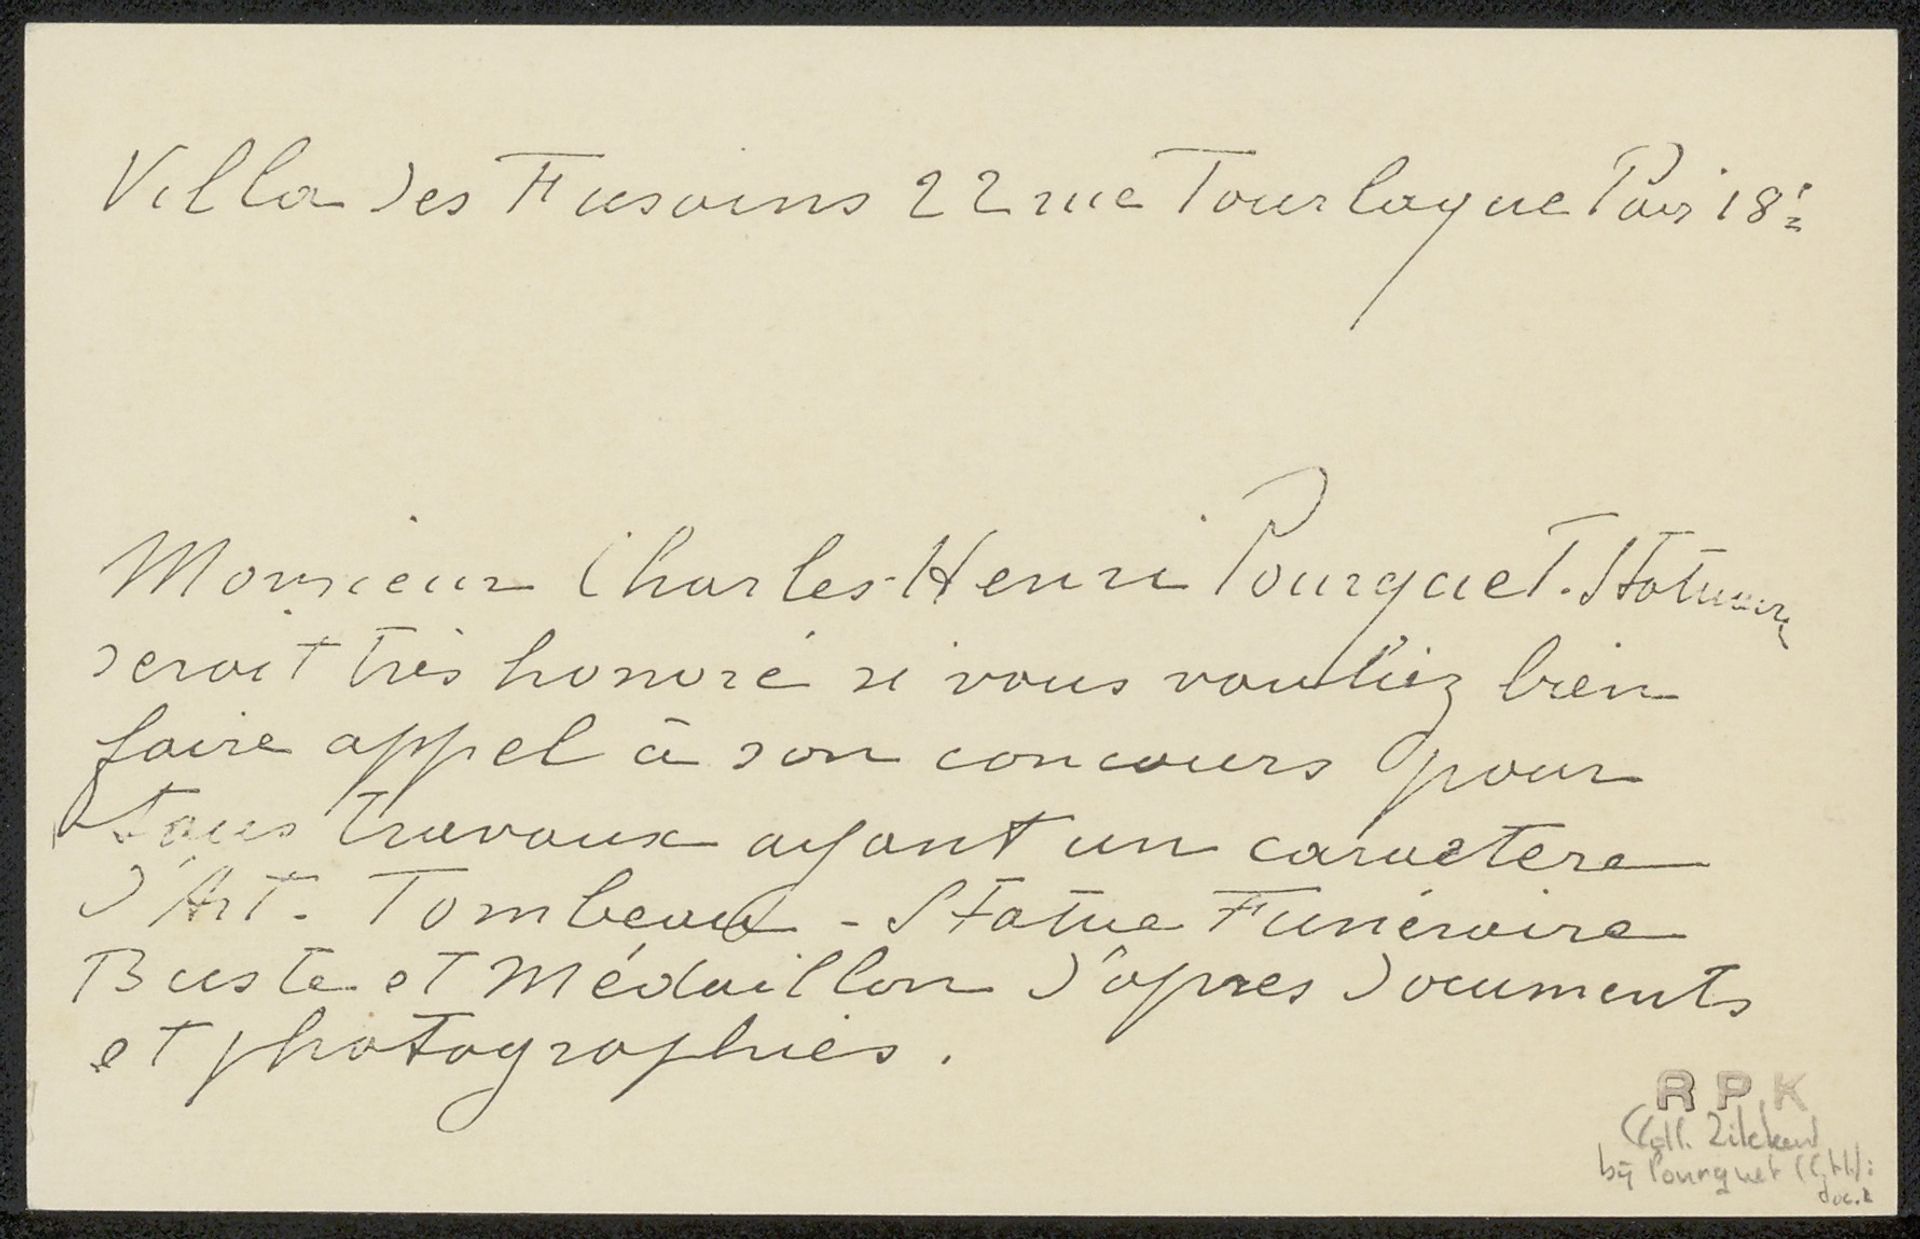 Villa des Fusains 22 rue Tourlaque Paris 18e
Monsieur Charles-Henri Pourquet. Statuaire
serait très honoré si vous vouliez bien
faire appel à son concours pour
tous travaux ayant un caractere
d'Art. Tombeaux - Statue Funéraire
Buste et Médaillon d'apres documents
et photographies.
RPK
(Coll. Zilcken)
bij Pourquet (C.H.):
doc. 2